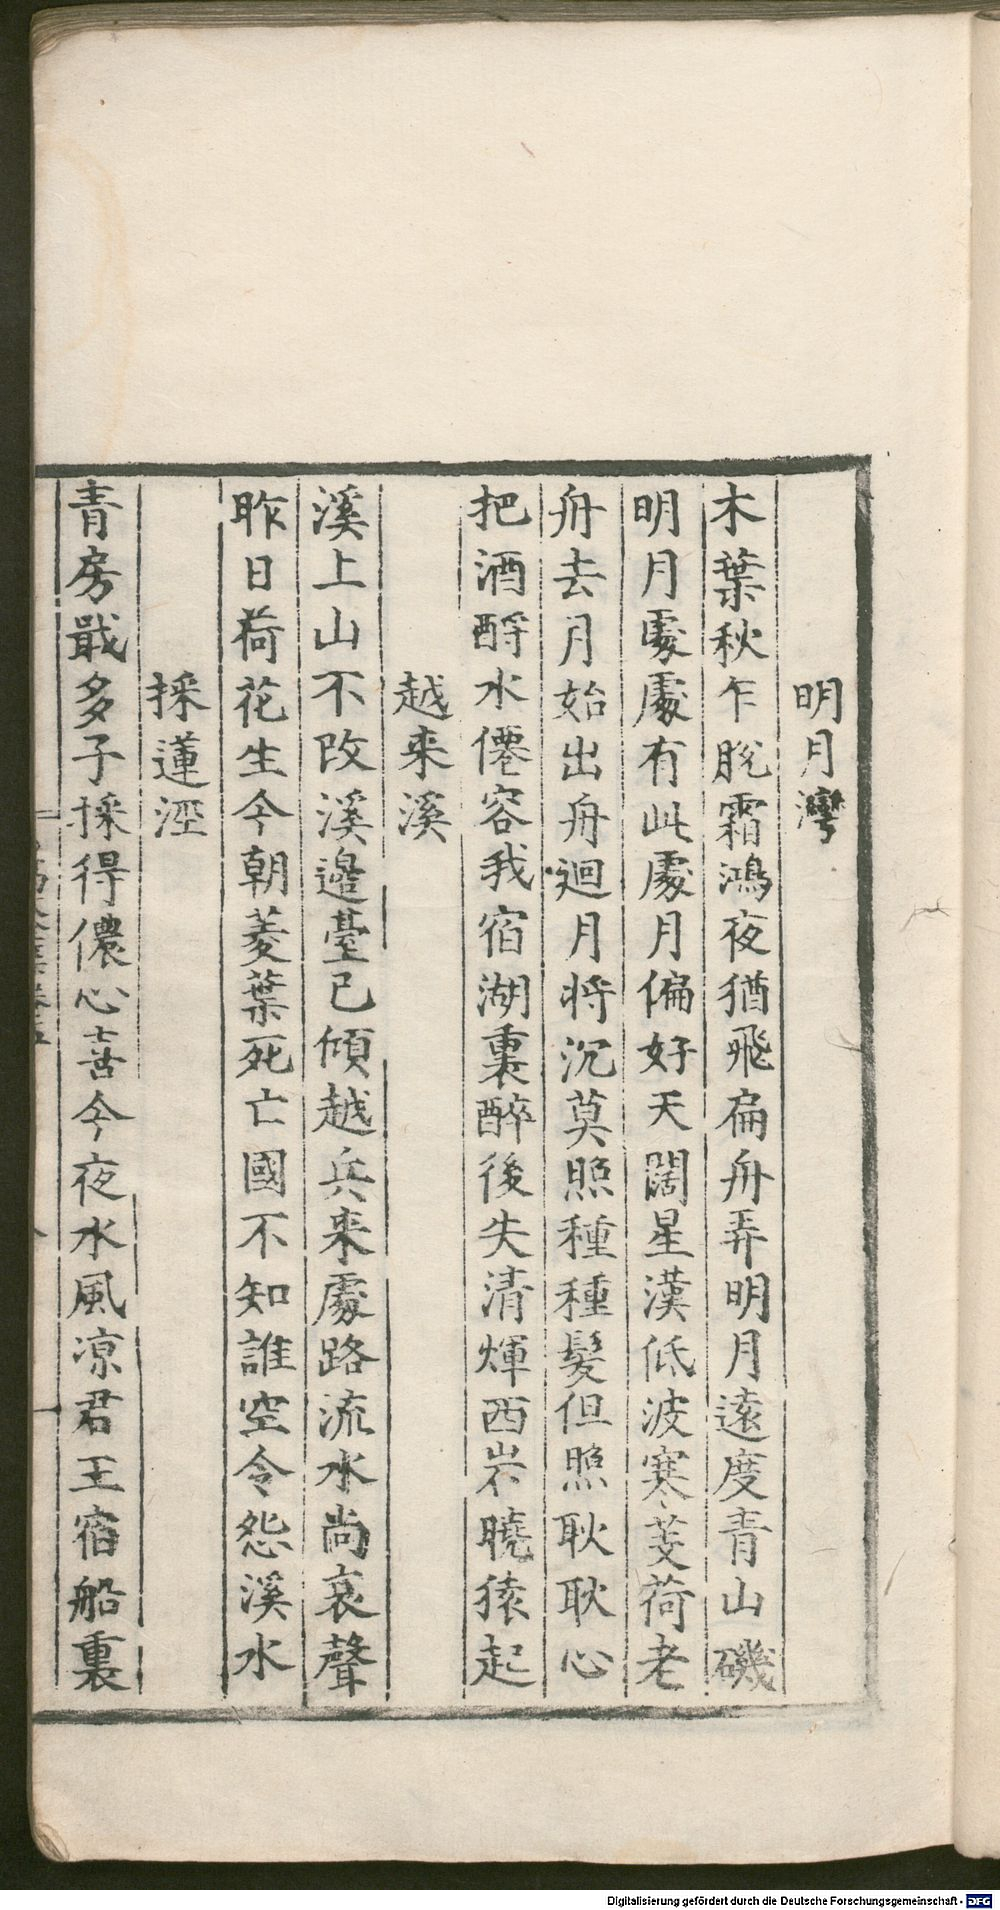 明月灣
木葉秋乍脫霜鴻夜猶飛扁舟弄明月遠度青山磯
明月處處有此處月偏好天闊星漢低波寒芰荷老
舟去月始出舟廻月將沉莫照種種髮但照耿耿心
把酒酹水僊容我宿湖裏醉後失清煇西岩曉猿起
越来溪
溪上山不改溪邉臺已傾越兵来處路流水尚哀聲
昨日荷花生今朝菱葉死亡國不知誰空令怨溪水
採蓮涇
青房戢多子採得儂心喜今夜水風凉君王宿船裏
Digitalisierung gefördert durch die Deutsche Forschungsgemeinschaft - DFG